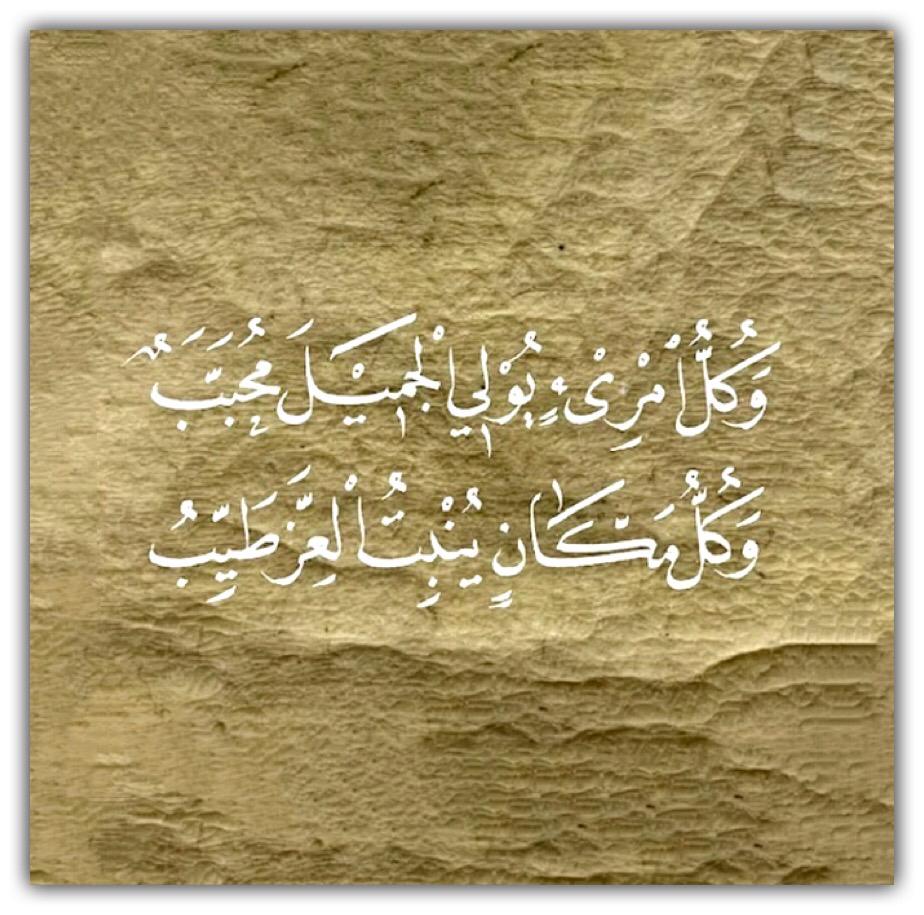 وَكُلُّ امْرِئٍ يُوْلِي الْجَمِيْلَ مُحَبَّبٌ
وَكُلُّ مَكَانٍ يُنْبِتُ الْعِزَّ طَيِّبُ